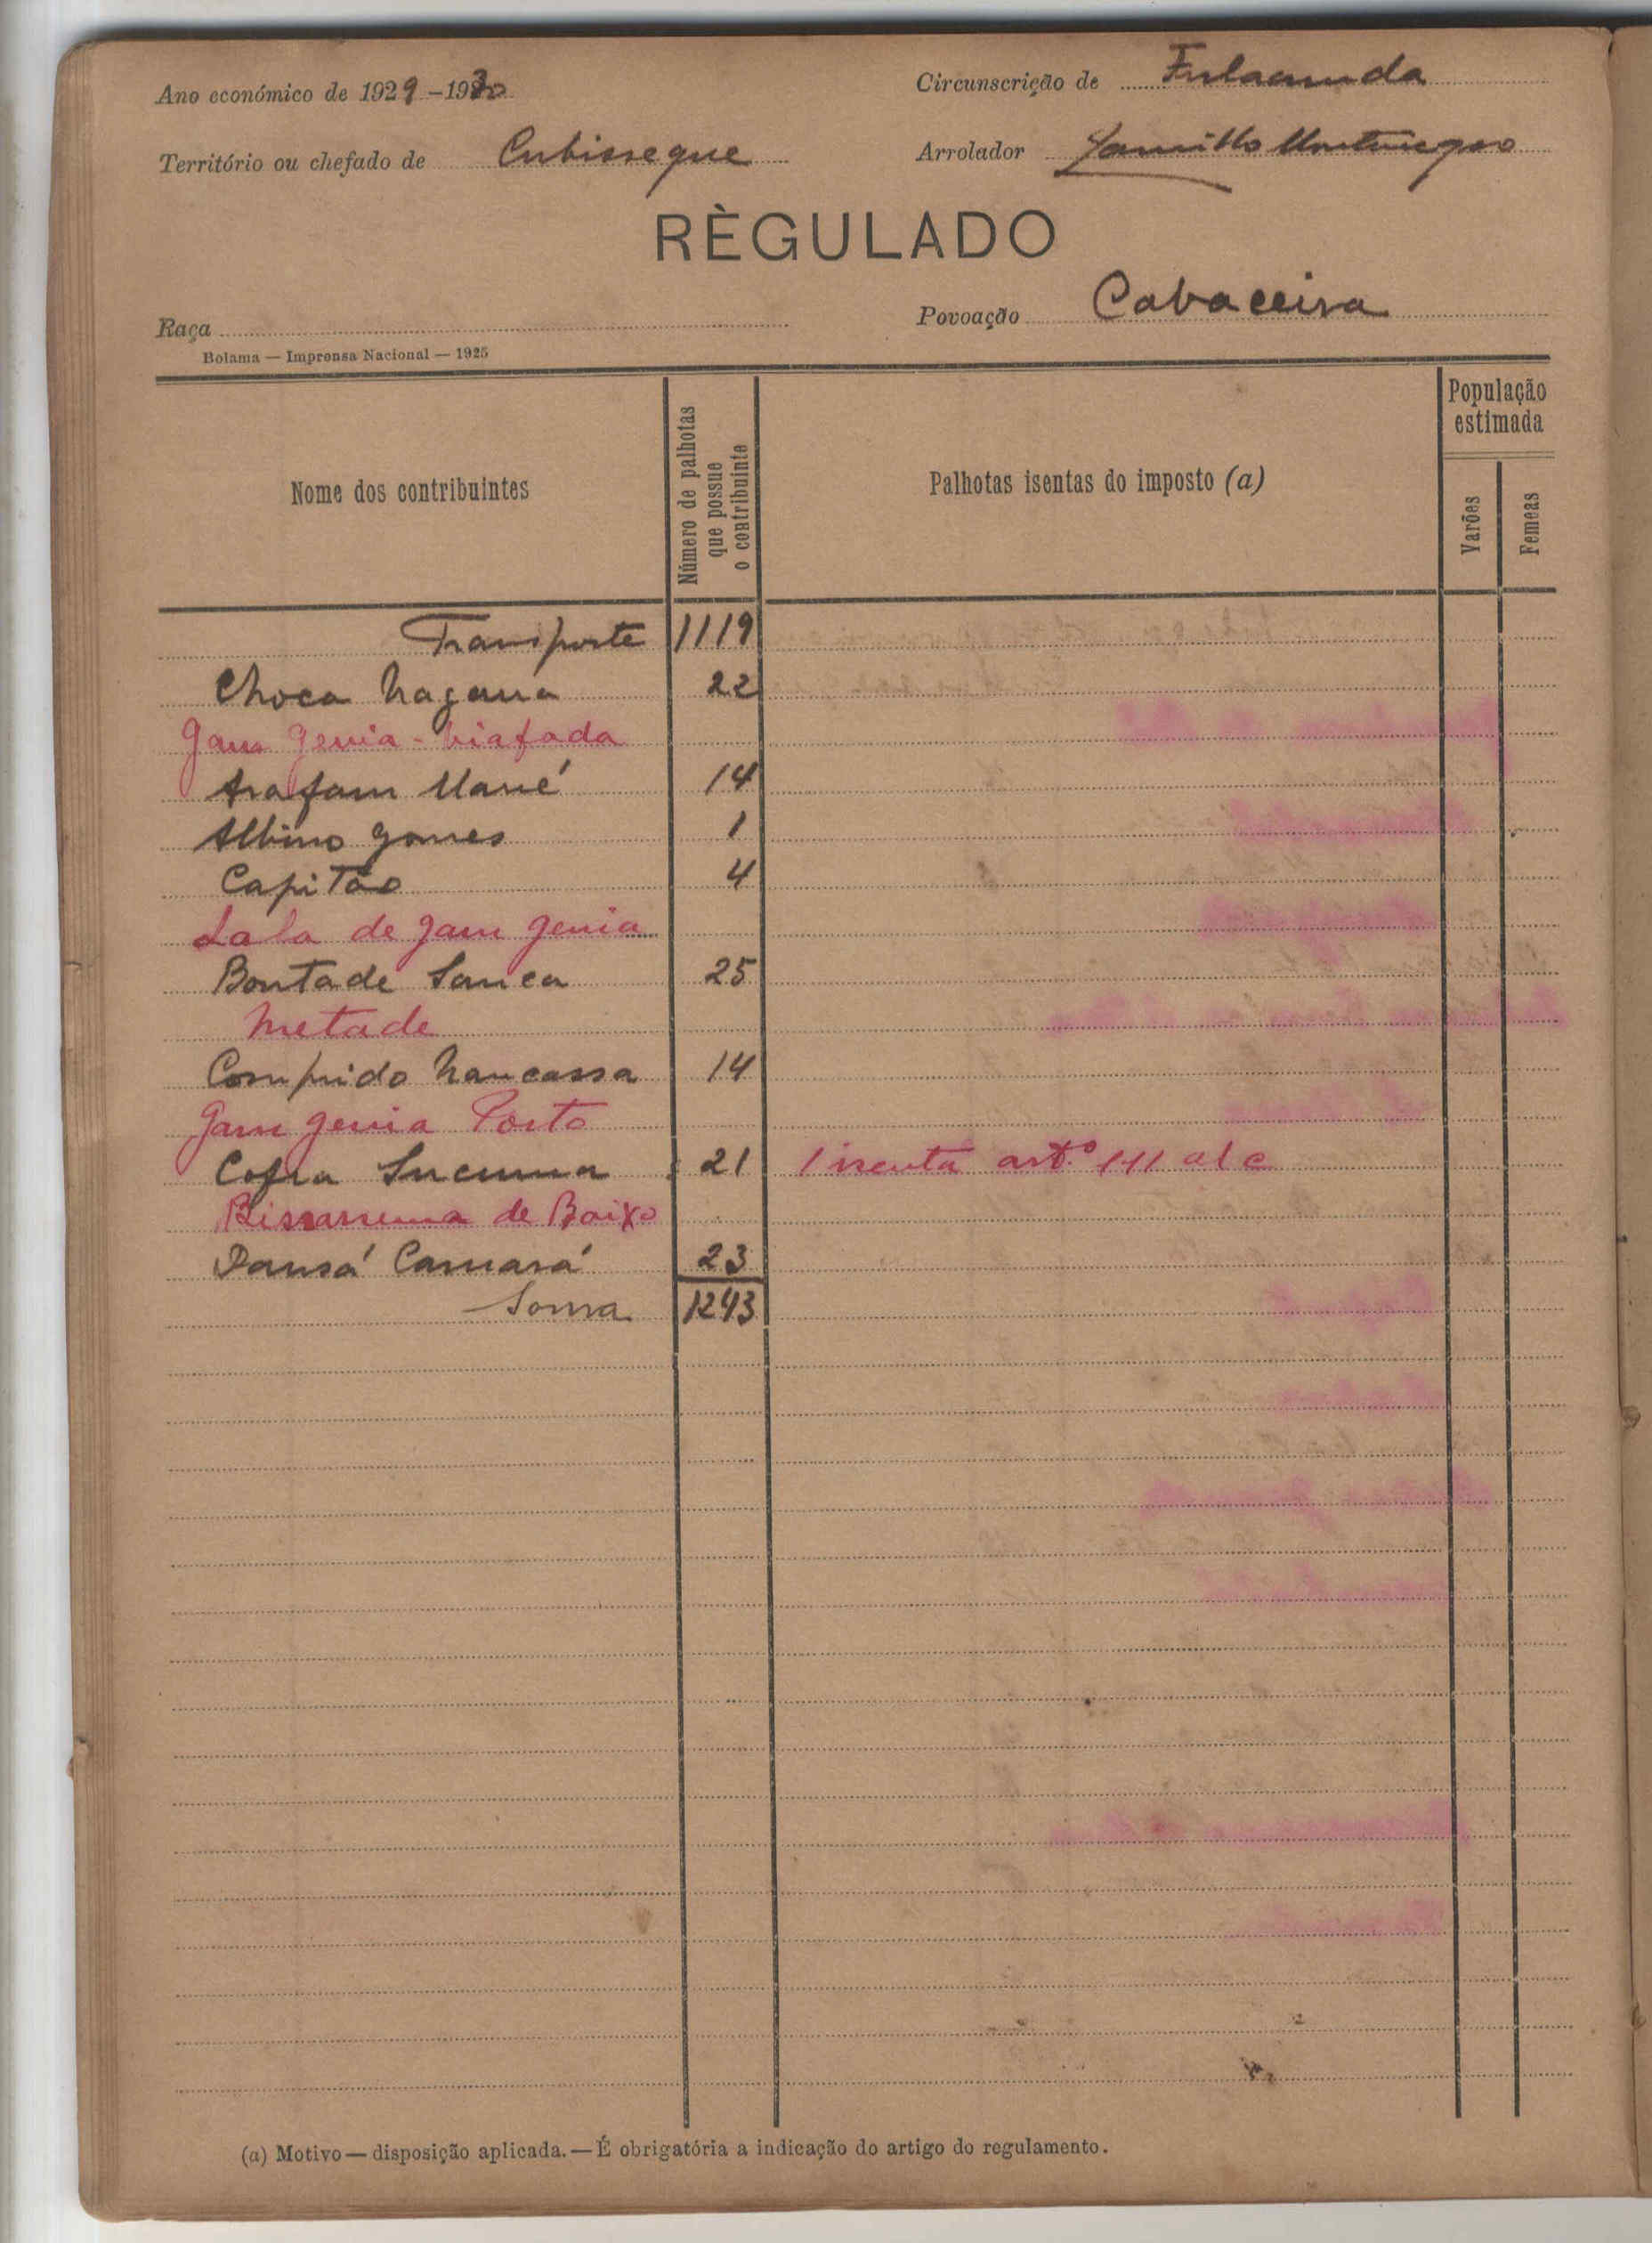 Ano económico de 1929-1930
Circunscrição de Fulacunda
Território ou chefado de Cubisseque
Arrolador Camillo Montenegro
RÈGULADO
Raça
Povoação Cabaceira
Bolama — Imprensa Nacional — 1925
Nome dos contribuintes
Número de palhotas que possue o contribuinte
Palhotas isentas do imposto (a)
População estimada
Varões
Femeas
Transporte 1119
Choca Nagana 22
Gam Genia - biafada
Arafam Mané 14
Albino Gomes 1
Capitão 4
Lala de Gam Genia
Bontade Sanca 25
Metade
Comprido Nancassa 14
Gam Genia Porto
Cofra Sucuma 21 1 isenta art.º 111 al c
Bissassema de Baixo
Dansá Camará 23
Soma 1243
(a) Motivo — disposição aplicada. — É obrigatória a indicação do artigo do regulamento.